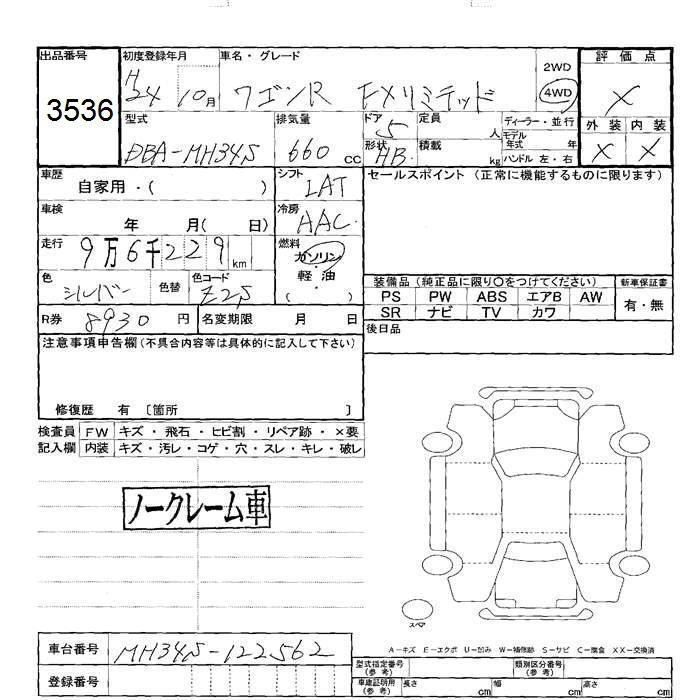 出品番号 初度登録年月 車名・グレード 2WD 評価点
3536 H24 10月 ワゴンR FXリミテッド 4WD X
型式 排気量 ドア 定員 ディーラー・並行 外装 内装
DBA-MH34S 660cc 5 人 モデル年式 年 X X
形状 積載 ハンドル 左・右
HB kg
車歴 シフト セールスポイント (正常に機能するものに限ります)
自家用・( ) IAT
車検 冷房
年 月( 日) AAC
走行 燃料
9万6千229km ガソリン・軽油
色 色替 色コード ( )
シルバー Z2S
装備品 (純正品に限り○をつけてください) 新車保証書
PS PW ABS エアB AW 有・無
SR ナビ TV カワ
R券 8930円 名変期限 月 日 後日品
注意事項申告欄 (不具合内容等は具体的に記入して下さい)
修復歴 有 〔箇所 〕
検査員 FW キズ・飛石・ヒビ割・リペア跡・×要
記入欄 内装 キズ・汚レ・コゲ・穴・スレ・キレ・破レ
ノークレーム車
スペア
A-キズ E-エクボ U-凹み W-補修跡 S-サビ C-腐食 XX-交換済
車台番号 MH34S-122562
登録番号
型式指定番号(参考) 類別区分番号(参考)
車庫証明用(参考) 長さ cm 幅 cm 高さ cm